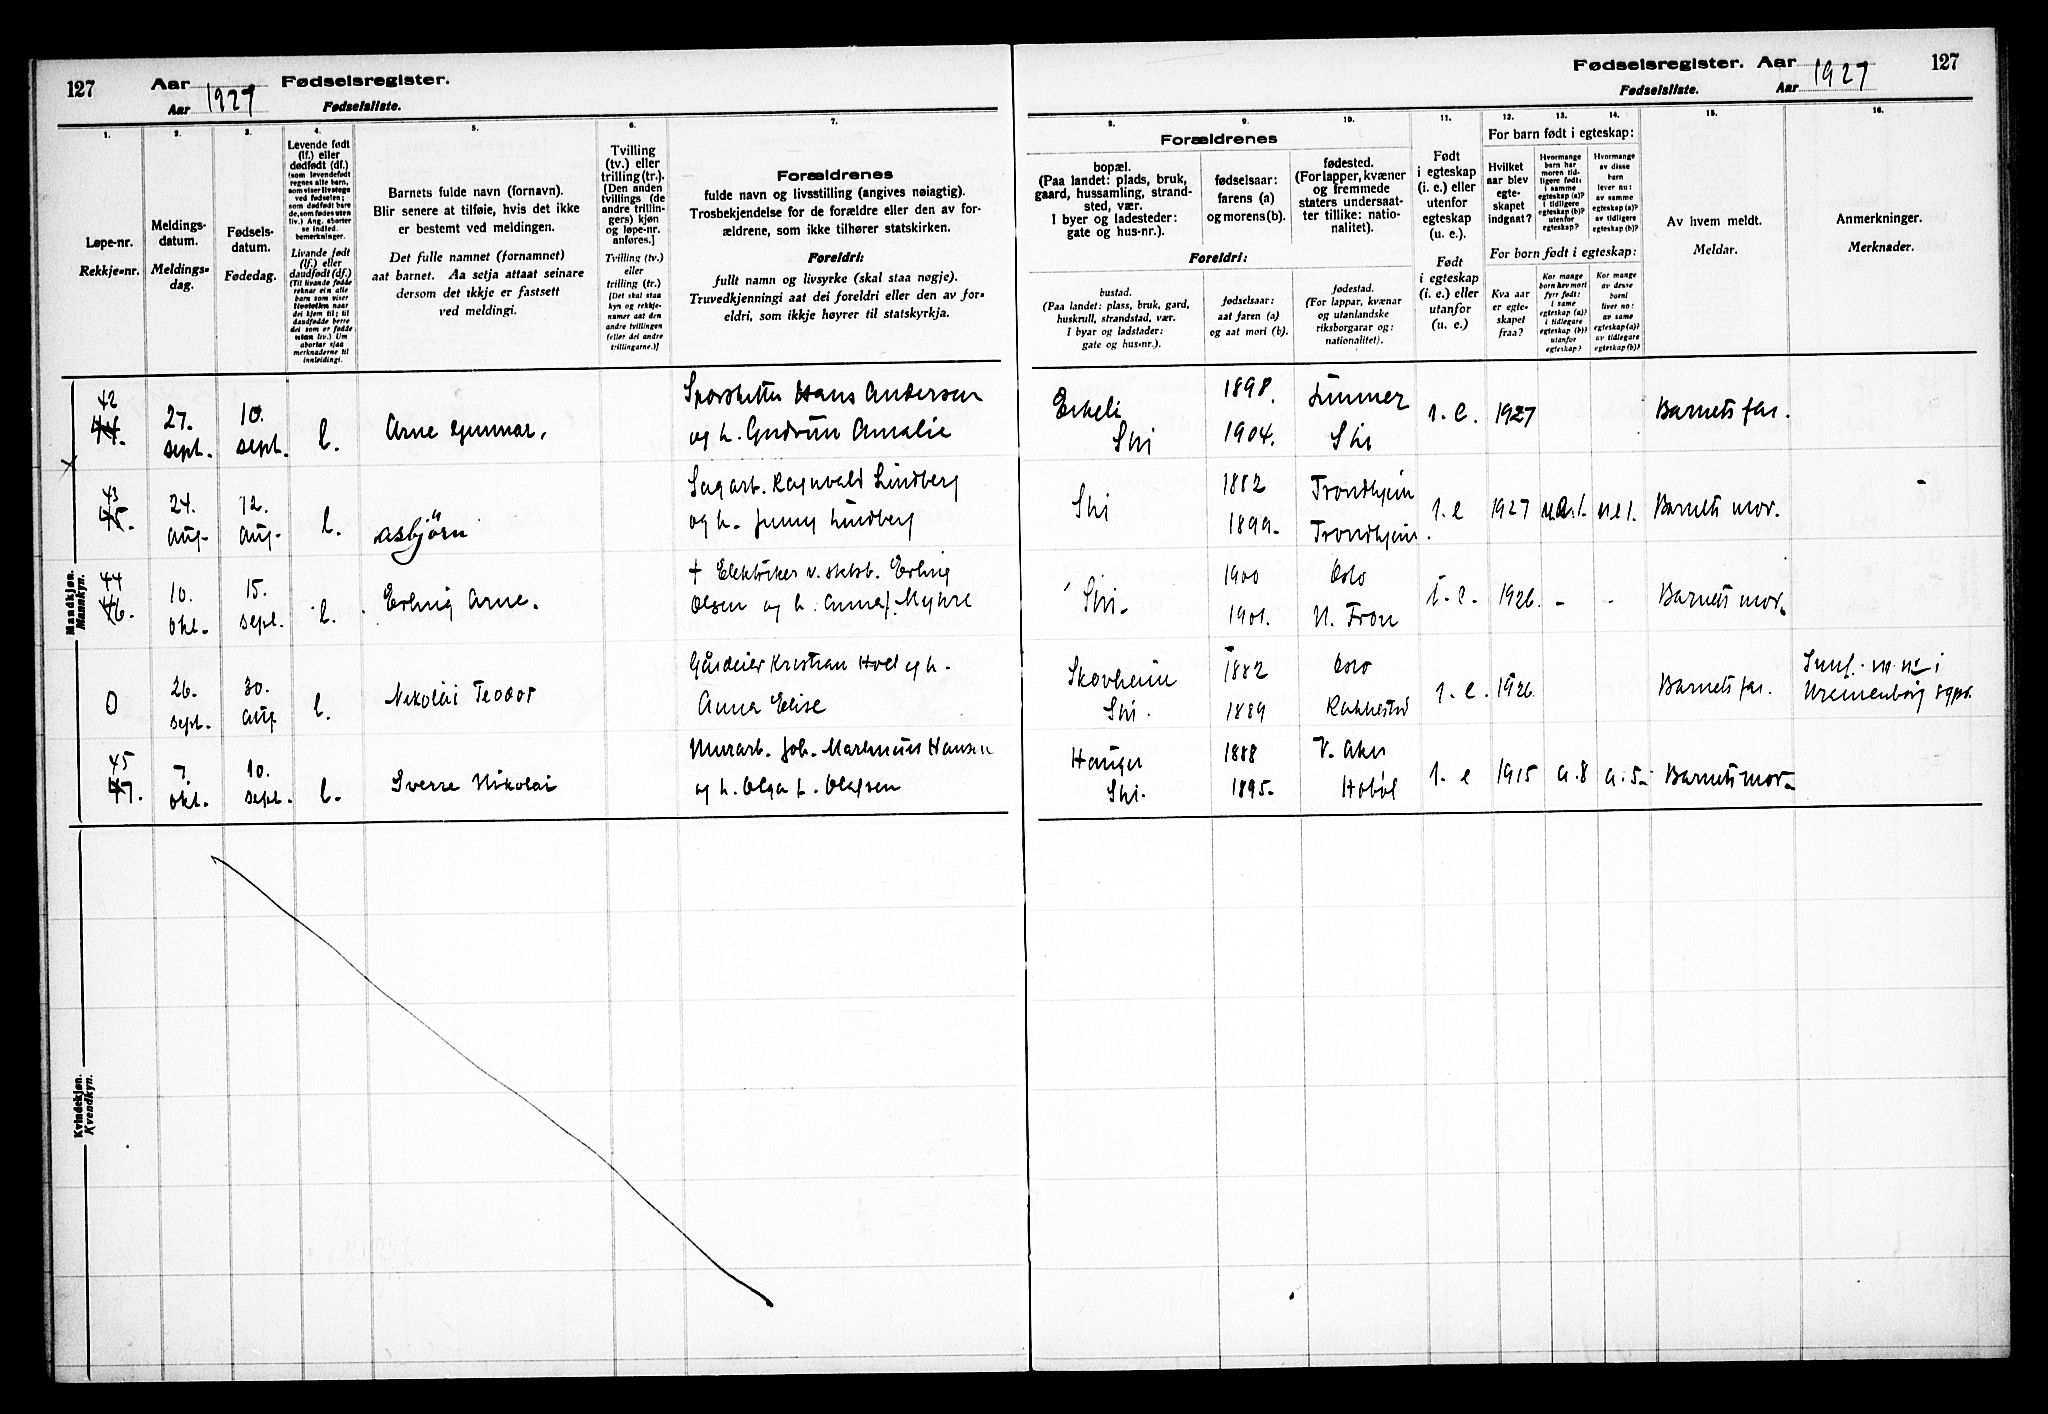 127
Aar 1927
Aar
Fødselsregister.
Fødselsliste.
1.
Løpe-nr.
Rekkje-nr.
2.
Meldings-
datum.
Meldings-
dag.
3.
Fødsels-
datum.
Fødedag.
4.
Levende født
(lf.) eller
dødfødt (df.)
(som levendefødt
regnes alle barn,
som viser livstegn
ved fødselen;
som dødfødt bare
de, som fødes uten
liv.) Ang. aborter
se indled.
bemerkninger.
Livande født
(lf.) eller
daudfødt (df.)
(Til livande fødde
reknar ein alle
barn som viser
livsteikn naar
dei kjem til; til
daudfødde berre
dei som er fødde
utan liv.) Um
abortar sjaa
merknaderne til
innleidingi.
5.
Barnets fulde navn (fornavn).
Blir senere at tilføie, hvis det ikke
er bestemt ved meldingen.
Det fulle namnet (fornamnet)
aat barnet. Aa setja attaat seinare
dersom det ikkje er fastsett
ved meldingi.
6.
Tvilling
(tv.) eller
trilling (tr.).
[Den anden
tvillings (de
andre trillin-
gers) kjøn
og løpe-nr.
anføres.]
Tvilling (tv.)
eller
trilling (tr.)
[Det skal staa
kyn og rekkje-
numer aat den
andre tvillingen
(eller dei andre
trillingarne.)]
7.
Forældrenes
fulde navn og livsstilling (angives nøiagtig).
Trosbekjendelse for de forældre eller den av for-
ældrene, som ikke tilhører statskirken.
Foreldri:
fullt namn og livsyrke (skal staa nøgje).
Truvedkjenningi aat dei foreldri eller den av for-
eldri, som ikkje høyrer til statskyrkja.
Mandkjøn.
Mannkyn.
42
44.
27.
sept.
10.
sept.
l.
Arne Gunnar.
Hans Andersen
og h. Gudrun Amalie
43
45.
24.
Aug.
12.
Aug.
l.
Asbjørn
Sagarb. Ragnvald Lindberg
og h. Jenny Lindberg
44
46.
10.
okt.
15.
sept.
l.
Erling Arne.
+ Elektriker v. Erling
Olsen og h. Anna f. Myhre
0
26.
sept.
30.
aug.
l.
Nikolai Teodor
Gårdeier Kristian Hoel og h.
Anna Elise
45
47.
7.
okt.
10.
sept.
l.
Sverre Nikolai
Murarb. Joh. Martinius Hansen
og h. Olga f. Olafsen
Kvindekjøn.
Kvendkyn.
Fødselsregister. Aar 1927
127
Fødselsliste.
Aar
8.
Forældrenes
bopæl.
(Paa landet: plads, bruk,
gaard, hussamling, strand-
sted, vær.
I byer og ladesteder:
gate og hus-nr.).
Foreldri:
bustad.
(Paa landet: plass, bruk, gard,
huskrull, strandstad, vær.
I byar og ladstader:
gate og hus-nr.).
9.
fødselsaar:
farens (a)
og morens (b).
fødselsaar:
aat faren (a)
og aat mori (b).
10.
fødested.
(For lapper, kvæner
og fremmede
staters undersaat-
ter tillike: natio-
nalitet).
fødestad.
(For lappar, kvænar
og utanlandske
riksborgarar og:
nationalitet).
11.
Født
i egteskap
(i. e.) eller
utenfor
egteskap
(u. e.).
Født
i egteskap
(i. e.) eller
utanfor
(u. e.)
For barn født i egteskap:
12.
Hvilket
aar blev
egte-
skapet
indgaat?
For born født i egteskap:
Kva aar
er egte-
skapet
fraa?
13.
Hvormange
barn har
moren tid-
ligere født:
i samme
egteskap (a)?
i tidligere
egteskap (b)?
utenfor
egteskap?
Kor mange
born hev mori
fyrr født:
i same
egteskap (a)?
i tidlegare
egteskap (b)?
utanfor
egteskap?
14.
Hvormange
av disse
barn
lever nu:
av samme
egteskap (a)?
av tidligere
egteskap (b)?
Kor mange
av desse
borni
liver no:
av same
egteskap (a)?
av tidlegare
egteskap (b)?
15.
Av hvem meldt.
Meldar.
16.
Anmerkninger.
Merknader.
Ski
1898.
1904.
Lunner
Ski
i. e.
1927
Barnets far.
Ski
1882
1899.
Trondhjem
Trondhjem.
i. e
1927
Barnets mor.
Ski.
1900
1901.
Oslo
N. Fron
i. e.
1926.
-
-
Barnets mor.
Skovheim
Ski.
1882
1889
Oslo
Rakkestad
i. e.
1926.
Barnets far.
Hauger
Ski.
1888
1895.
V. Aker
Hobøl
i. e
1915
a. 8
a. 5
Barnets mor.